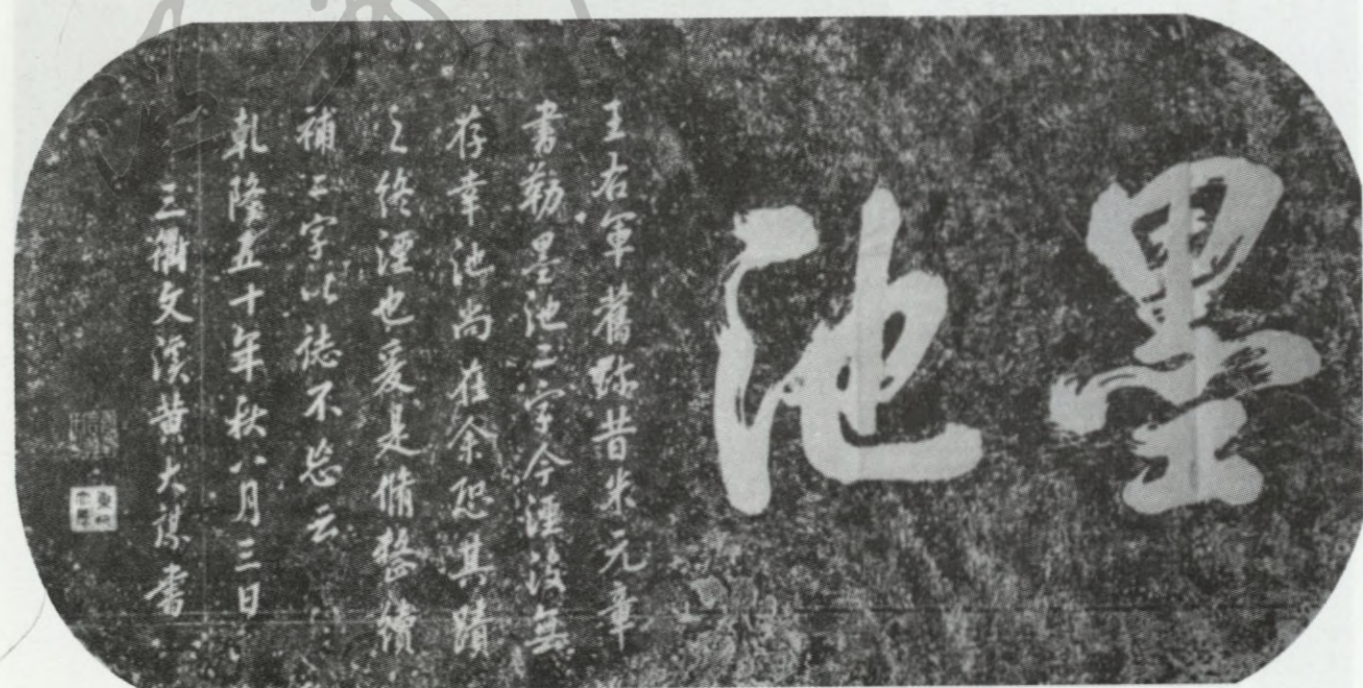 墨池
王右軍舊跡昔米元章
書勒墨池二字今湮沒無
存幸池尚在余恐其蹟
之終湮也爰是脩整續
補二字以誌不忘云
乾隆五十年秋八月三日
三衢文溪黃大謀書